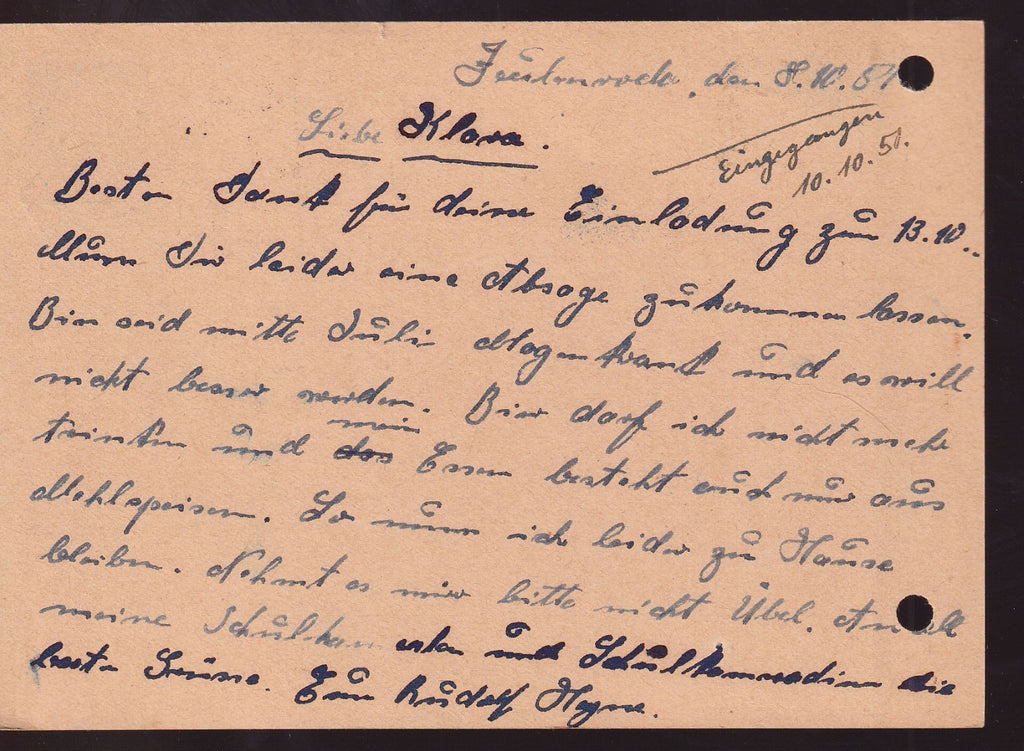 Zeulenroda, den 8.10.51
Eingegangen
10.10.51.
Liebe Klara.
Besten Dank für deine Einladung zum 13.10..
Muss Dir leider eine Absage zukommen lassen.
Bin seid mitte Juli Magenkrank und es will
nicht besser werden. Bier darf ich nicht mehr
mein
trinken und das Essen besteht auch nur aus
Mehlspeisen. So muss ich leider zu Hause
bleiben. Nehmt es mir bitte nicht Übel. An all
meine Schulkameraden und Schulkameradinn die
besten Grüsse. Euer Rudolf